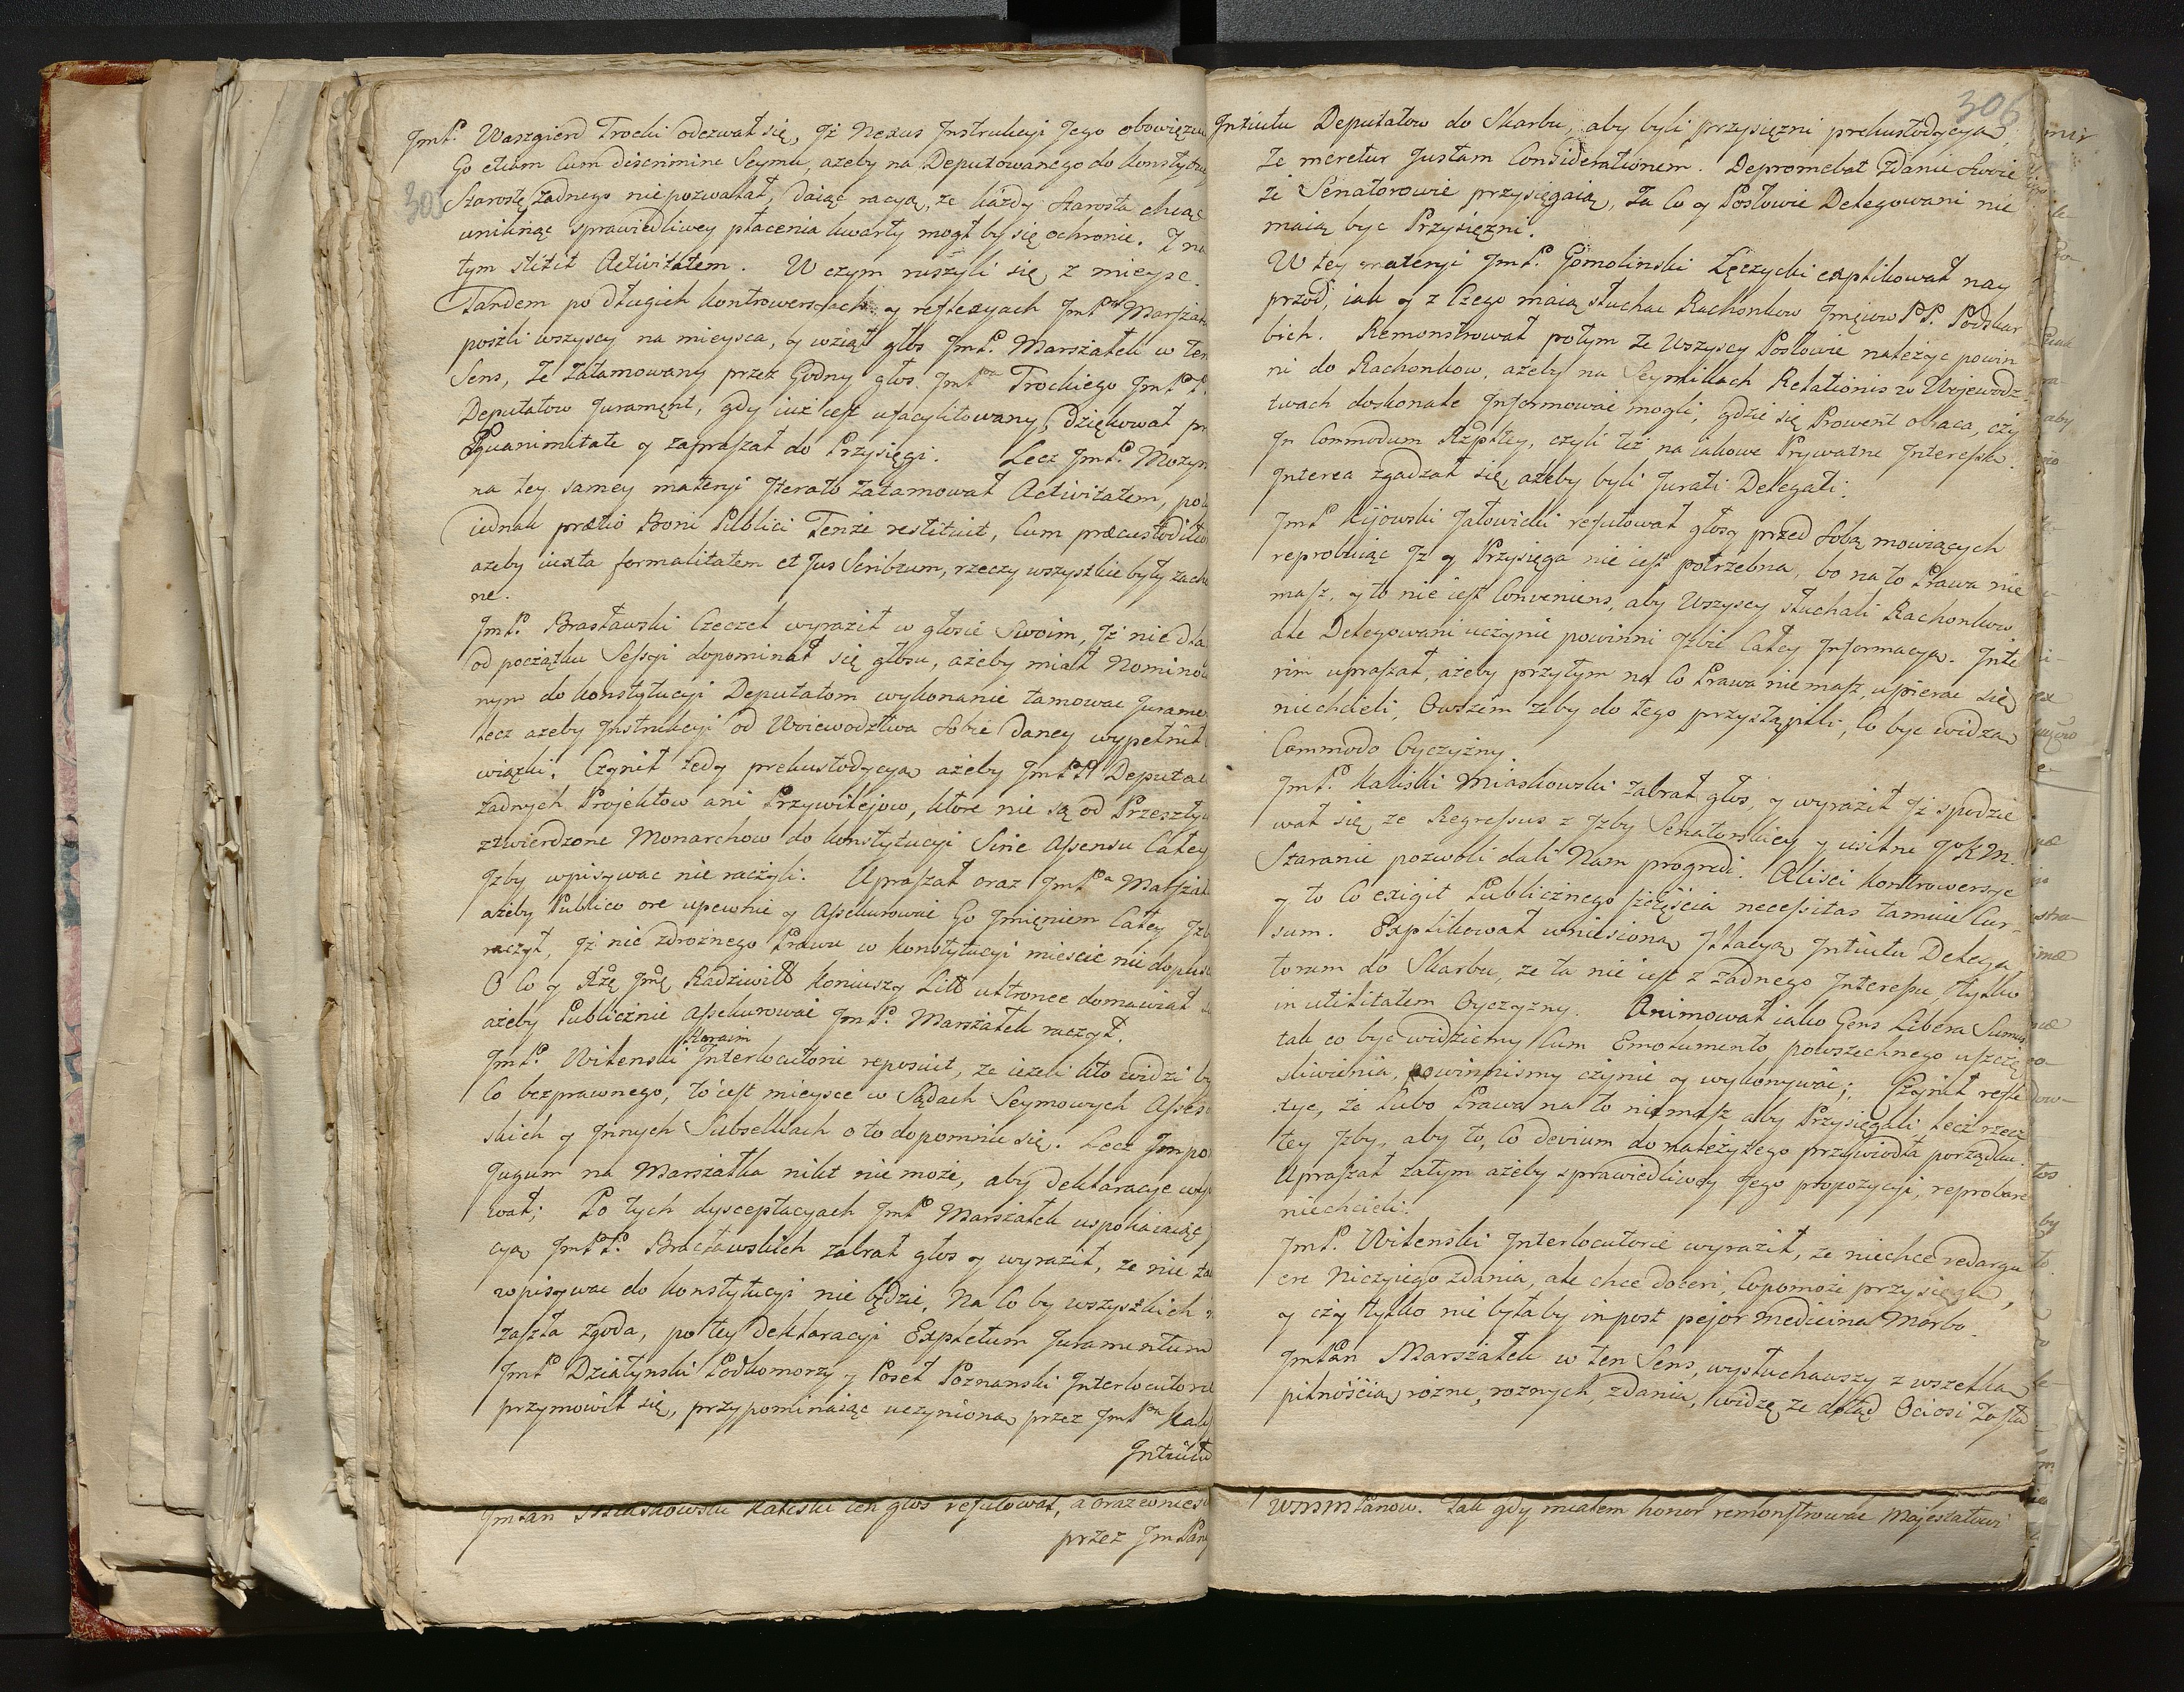 305
JmP. Waszgierd Trocki odezwał się, Jż Nexus Instrukcyi Jego obowięzu
Go etiam Cum discrimine Seymu, ażeby na Deputowanego do Konstytuc
Starostę żadnego niepozwalał, daiąc racyą, że każdy Starosta chcąc
uniknąc sprawiedliwey płacenia kwarty mogł by się ochronic. I na
tym stitit Activitatem. W czym ruszyli się z mieysc.
Tandem po długich kontrowersyach y reflexyach JmPna Marszał
poszli wszyscy na mieysca, y wziął głos JmP. Marszałek w ten
Sens, Że Zatamowany przez Godny głos JmPa Trockiego JmPP.
Deputatow Jurament, gdy iuż iest ufacylitowany, dziękował pr
Æquanimitate y zapraszał do Przysięgi. Lecz JmP. Mozyr
na tey samey materyi Iterato Zatamował Activitatem, pot
iednak prætio Boni Publici Tenże restituit, Cum præcustodito
ażeby iuxta formalitatem et Jus Scribtum, rzeczy wszystkie były zach
ne.
JmP. Brasławski Czeczet wyraził w głosie Swoim, Jż nie dla
od początku Sessyi dopominał się głosu, ażeby miał Nomino
nym do Konstytucyi Deputatom wykonanie tamowac Jurame
lecz ażeby Instrukcyi od Woiewodztwa Sobie daney wypełnił
wiązki. Czynił tedy prekustodycya ażeby JmPP Deputa
żadnych Projektow ani Przywilejow, ktore nie są od Przeszły
ztwierdzone Monarchow do Konstytucyi Sine Assensu Całey
Izby wpisywac nie raczyli. Upraszał oraz JmPa Marszał
ażeby Publico ore upewnic y Assekurowac Go Imięniem Całey Izb
raczył, Jż nic zdrożnego Prawu w Konstytucyi mieścic nie dopusc
O Co y Xżę Jmć Radziwiłł Koniuszy Litt ultronee domawiał
ażeby Publicznie Assekurowac JmP. Marszałek raczył.
Karaim
JmP. Witenski Interlocutorie reposuit, że ieżeli kto widzi by
Co bezprawnego, to iest mieysce w Sądach Seymowych Asses
skich y Innych Subselliach o to dopomnic się. Lecz Impo
Jugum na Marszałka nikt nie może, aby deklaracye
wał; Po tych dysceptacyach JmP Marszałek uspokaiaiąc
cya JmPP. Bracławskich zabrał głos y wyraził, że nic ta
wpisywac do Konstytucyi nie będzie, Na Co by wszystkich
zaszła zgoda, po tey deklaracyi Expletum Juramentum
JmP Działynski Podkomorzy y Poseł Poznanski Interlocutorie
przymowił się, przypominaiąc uczynioną przez JmPa Kali
Intuitu
JmPan Miaskowski Kaliski ich głos refutował, a oraz wnies
przez JmPan
306
Intuitu Deputatow do Skarbu, aby byli przysięzni prekustodycya,
że meretur Justam Considerationem. Depromebat Zdanie Swoie
że Senatorowie przysięgaią, Za Co y Posłowie Delegowani nie
maią byc Przysięzni.
W tey materyi JmP. Gomolinski Łęczycki explikował nay
przod, iak y z Czego maią słuchac Rachonkow Jmciow PP. Podskar
bich. Remonstrował potym że Wszyscy Posłowie należyc powin
ni do Rachonkow, ażeby na Seymikach Relationis w Wojewodz
twach doskonale Informowac mogli, gdzie się Prowent obraca, czy
In Commodum Rzptey, czyli też na iakowe Prywatne Interessa.
Interea zgadzał się, ażeby byli Jurati Delegati.
JmP Kijowski Jałowicki refutował głosy przed Sobą mowiących
reprobuiąc Jż y Przysięga nie iest potrzebna, bo na to Prawa nie
masz, y to nie iest Conveniens, aby Wszyscy słuchali Rachonkow
ale Delegowani uczynic powinni Izbie Całey Informacya. Inte
rim upraszał, ażeby przytym na Co Prawa niemasz, upierac się
niechcieli, Owszem żeby do tego przystąpili, Co byc widza
Commodo Oyczyzny.
JmP Kaliski Miaskowski Zabrał głos, y wyraził Jż spodzie
wał się że Regressus z Izby Senatorskiey y usilne JKM.
Staranie pozwoli dali Nam progredi. Alisci Kontrowersye
y to Co exigit Publicznego szczęścia necessitas tamuie Cur-
sum. Explikował wniesioną Illacyą Intuitu Delega
torum do Skarbu, że ta nie iest z żadnego Interessu, tylko
in utilitatem Oyczyzny. Animował iako Gens Libera Sumus
tak co byc widziemy Cum Emolumento powszechnego uszczę
śliwienia, powinnismy czynic y wykonywac; Czynił refle
xye, że lubo Prawa na to niemasz aby Przysięgali lecz rzecz
tey Izby, aby to, Co devium do należytego przywiodła porządku.
Upraszał zatym ażeby sprawiedliwey Jego propozycyi, reprobare
niechcieli.
JmP. Witenski Interlocutorie wyraził, że niechce redargu
ere Niczyiego zdania, ale chce doceri, Copomoże przysięga,
y czy tylko nie byłaby inpost pejor Medicina Morbo.
JmPan Marszałek w ten Sens, wysłuchawszy z wszelką
pilnością rożne, rożnych, zdania, widzę że dotąd Ociosi Zosta
WMMPanow. Jak gdy miałem honor remonstrowac Majestatowi